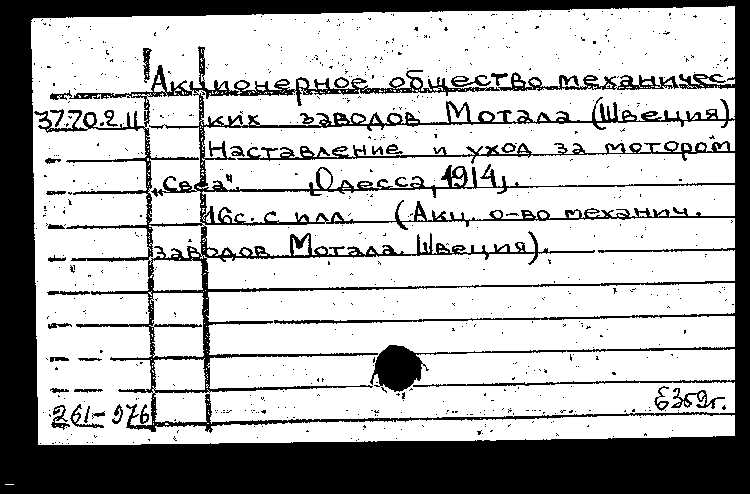 Акционерное общество механичес-
37.70.2.11 ких заводов Мотала (Швеция)
Наставление и уход за мотором
„Свеа". [Одесса, 1914].
16с. с илл. (Акц. о-во механич.
заводов Мотала. Швеция).
261-576